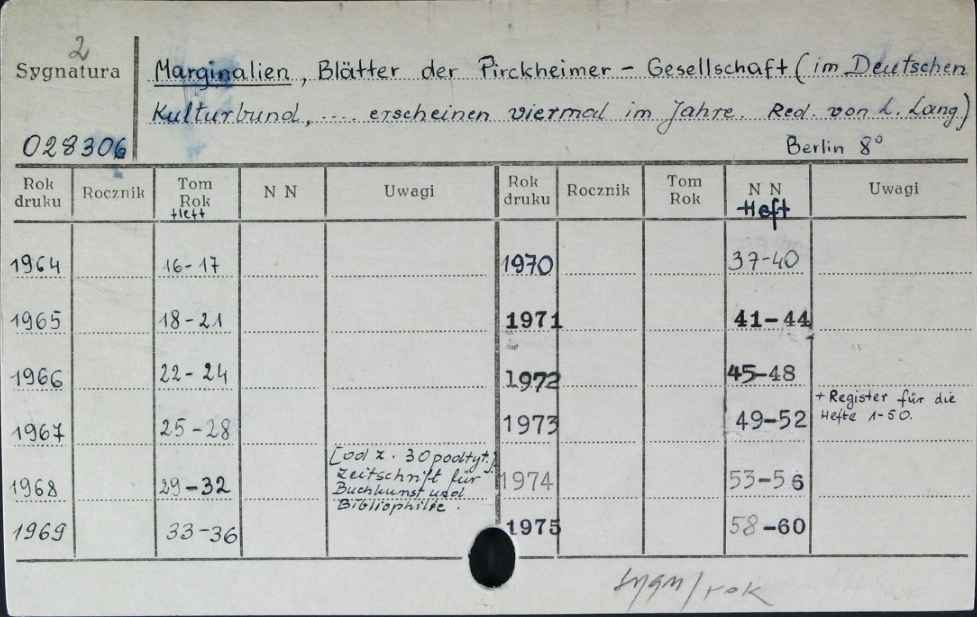 2
Sygnatura
028306
Marginalien, Blätter der Pirckheimer - Gesellschaft (im Deutschen
Kulturbund, .... erscheinen viermal im Jahre. Red. von L. Lang.)
Berlin 8°
Rok druku Rocznik Tom Rok Heft N N Uwagi Rok druku Rocznik Tom Rok N N Heft Uwagi
1964 16-17 1970 37-40
1965 18-21 1971 41-44
1966 22-24 1972 45-48
1967 25-28 1973 49-52 + Register für die Hefte 1-50.
1968 29-32 [od z. 30 podtyt.] Zeitschrift für Buchkunst und Bibliophilie. 1974 53-56
1969 33-36 1975 58-60
sygn/rok